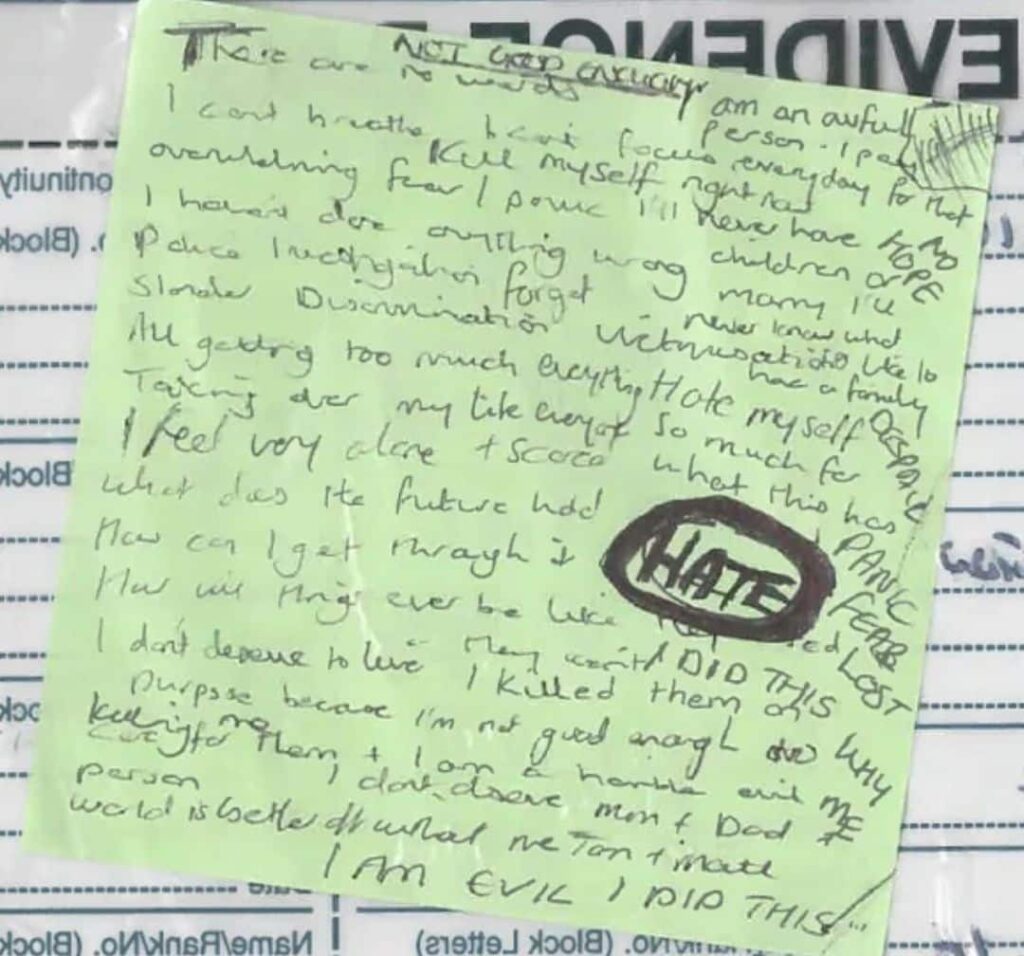 EVIDENCE
NOT GOOD ENOUGH
There are no words
I am an awfull
person - I pay
every day for that
right now
I cant breathe I can't focus
Kill myself
overwhelming fear / panic I'll never have
NO
HOPE
I haven't done anything wrong
children or
marry I'll
never know what
its like to
have a family
Police Investigation forget
Slander Discrimination Victimisation
All getting too much everything Hate myself
DESPAIR
Taking over my life everyt so much for
what this has
I feel very alone + scared
What does the future hold
PANIC
How can I get through it
HATE
FEAR
How will things ever be like they used
LOST
I don't deserve to live They went I DID THIS
I killed them on
purpose because I'm not good enough
WHY
ME
to care for them + I am a horrible evil
killing me
person I don't deserve mum + Dad
world is better off without me Tom + matt
I AM EVIL I DID THIS
ontinuity
o. (Block
Block
Date
Name/Rank/No. (Block
Rank/No. (Block Letters)